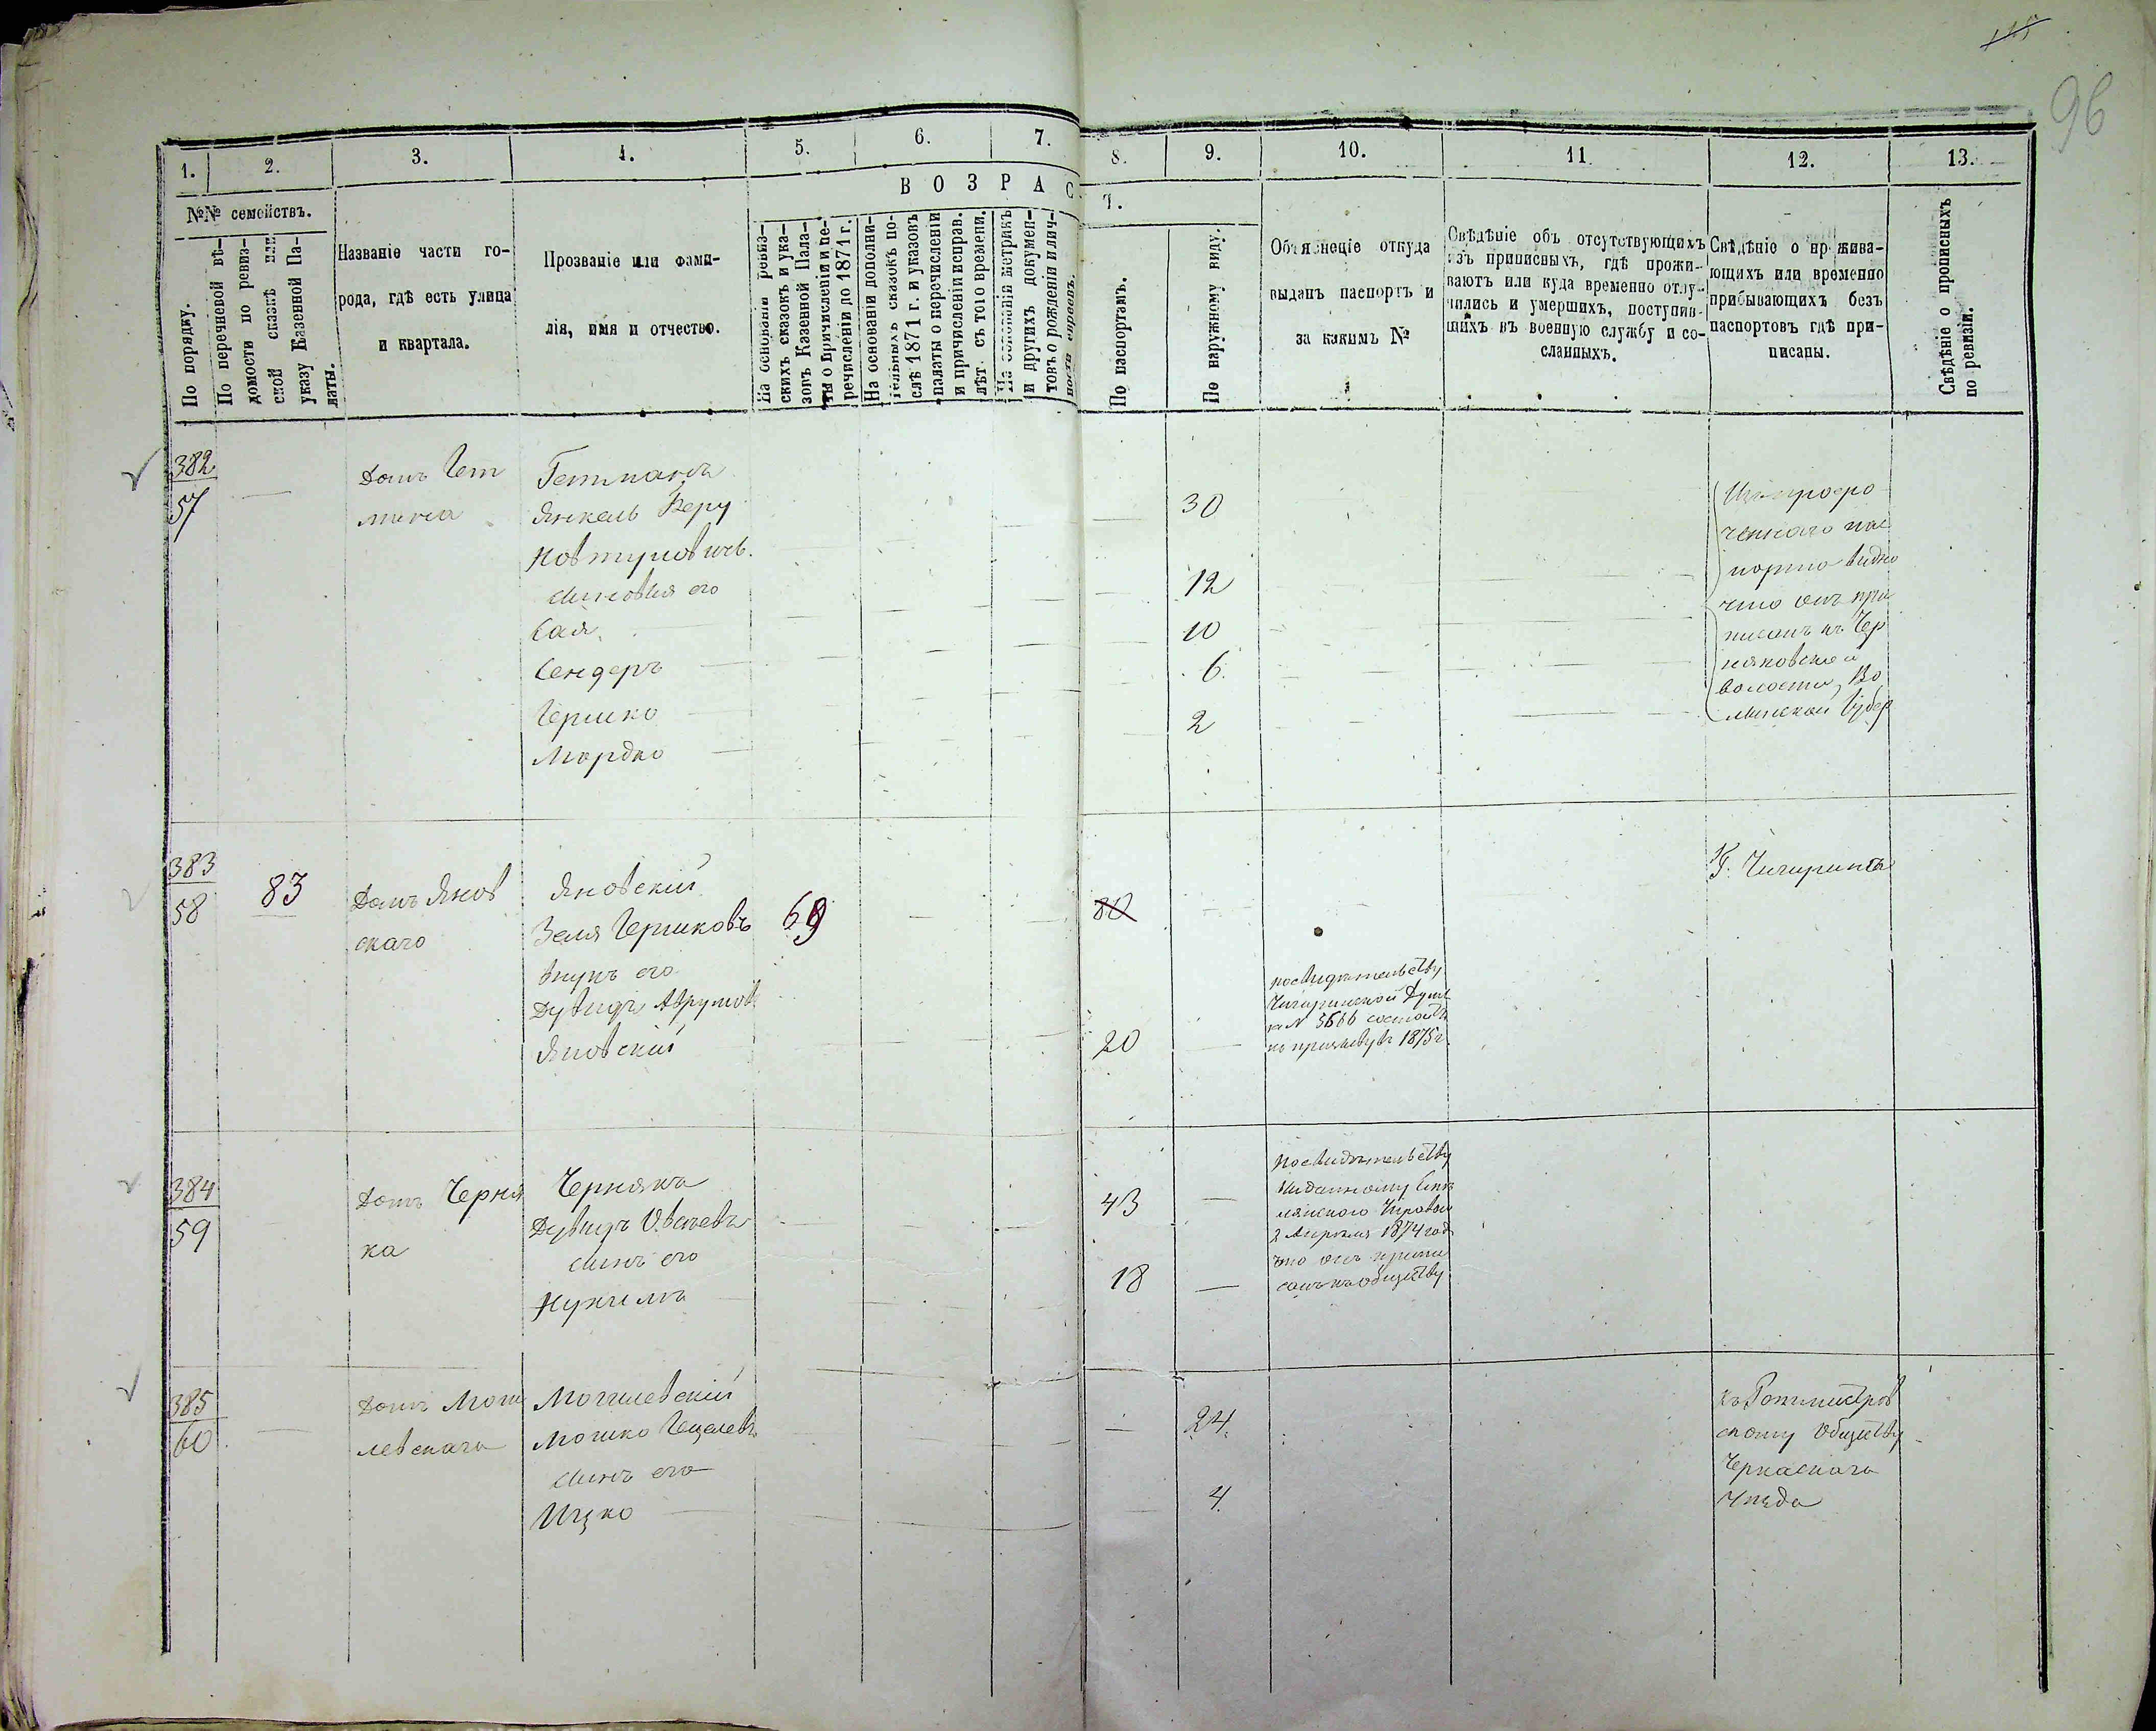 96
1. 2. 3. 4. 5. 6. 7. 8. 9. 10. 11. 12. 13.
ВОЗРАС
Т.
№№ семействъ.
По порядку.
По перечневой вѣ-
домости по ревиз-
ской сказкѣ или
указу Казенной Па-
латы.
Названіе части го-
рода, гдѣ есть улица
и квартала.
Прозваніе или фами-
лія, имя и отчество.
На основаніи ревиз-
скихъ сказокъ и ука-
зовъ Казенной Пала-
ты о причисленіи и пе-
речисленіи до 1871 г.
На основаніи дополни-
тельныхъ сказокъ по-
слѣ 1871 г. и указовъ
палаты о перечисленіи
и причисленіи исправ.
лѣт. съ того времени.
На основаніи метрикъ
и другихъ докумен-
товъ о рожденіи и лич-
ности евреевъ.
По паспортамъ.
По наружному виду.
Объясненіе откуда
выданъ паспортъ и
за какимъ №
Свѣдѣніе объ отсутствующихъ
изъ приписныхъ, гдѣ прожи-
ваютъ или куда временно отлу-
чились и умершихъ, поступив-
шихъ въ военную службу и со-
сланныхъ.
Свѣдѣніе о прожива-
ющихъ или временно
прибывающихъ безъ
паспортовъ гдѣ при-
писаны.
Свѣдѣніе о прописныхъ
по ревизіи.
382
57
Домъ Гет
мана
Гетманъ
Янкель Беру
Новтуловичъ.
сыновья его
Сая
Сендеръ
Гершко
Мордко
30
12
10
6
2
Изъ просро
ченнаго пас
порта видно
что онъ при
писанъ къ Чер
няховской
волости, Во
лынской Губер
383
58
83
Домъ Янов
скаго
Яновскій
Зеля Гершковъ
внукъ его
Дувидъ Аврумовъ
Яновскій
69
80
20
по свидѣтельству
Чигиринской Думы
за № 3666 состоитъ
къ призыву въ 1875 г.
Г. Чигирина
384
59
Домъ Черня
ка
Чернякъ
Дувидъ Овсѣевъ
сынъ его
Нухимъ
43
18
По свидѣтельству
выданному
2 Апрѣля 1874 год
что онъ припи
санъ къ обществу
385
60
Домъ Моги
левскаго
Могилевскій
Мошко Гецелевъ
сынъ его
Ицко
24
4
къ Ротмистров
скому Обществу
Черкаскаго
Уѣзда